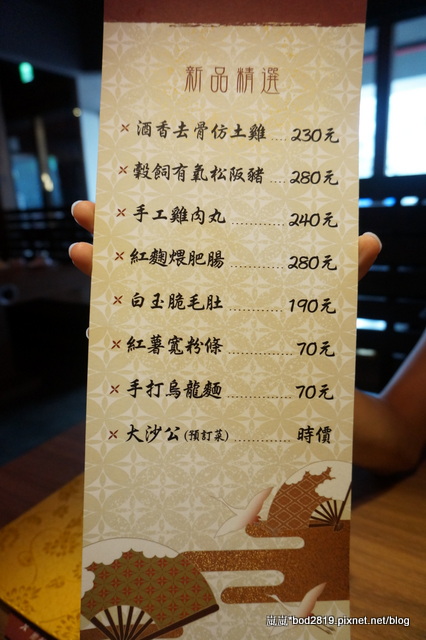 新品精選
×酒香去骨仿土雞....230元
×穀飼有氧松阪豬....280元
×手工雞肉丸............240元
×紅麴煨肥腸............280元
×白玉脆毛肚............190元
×紅薯寬粉條............70元
×手打烏龍麵............70元
×大沙公(預訂菜)............時價
嵐嵐*bod2819.pixnet.net/blog